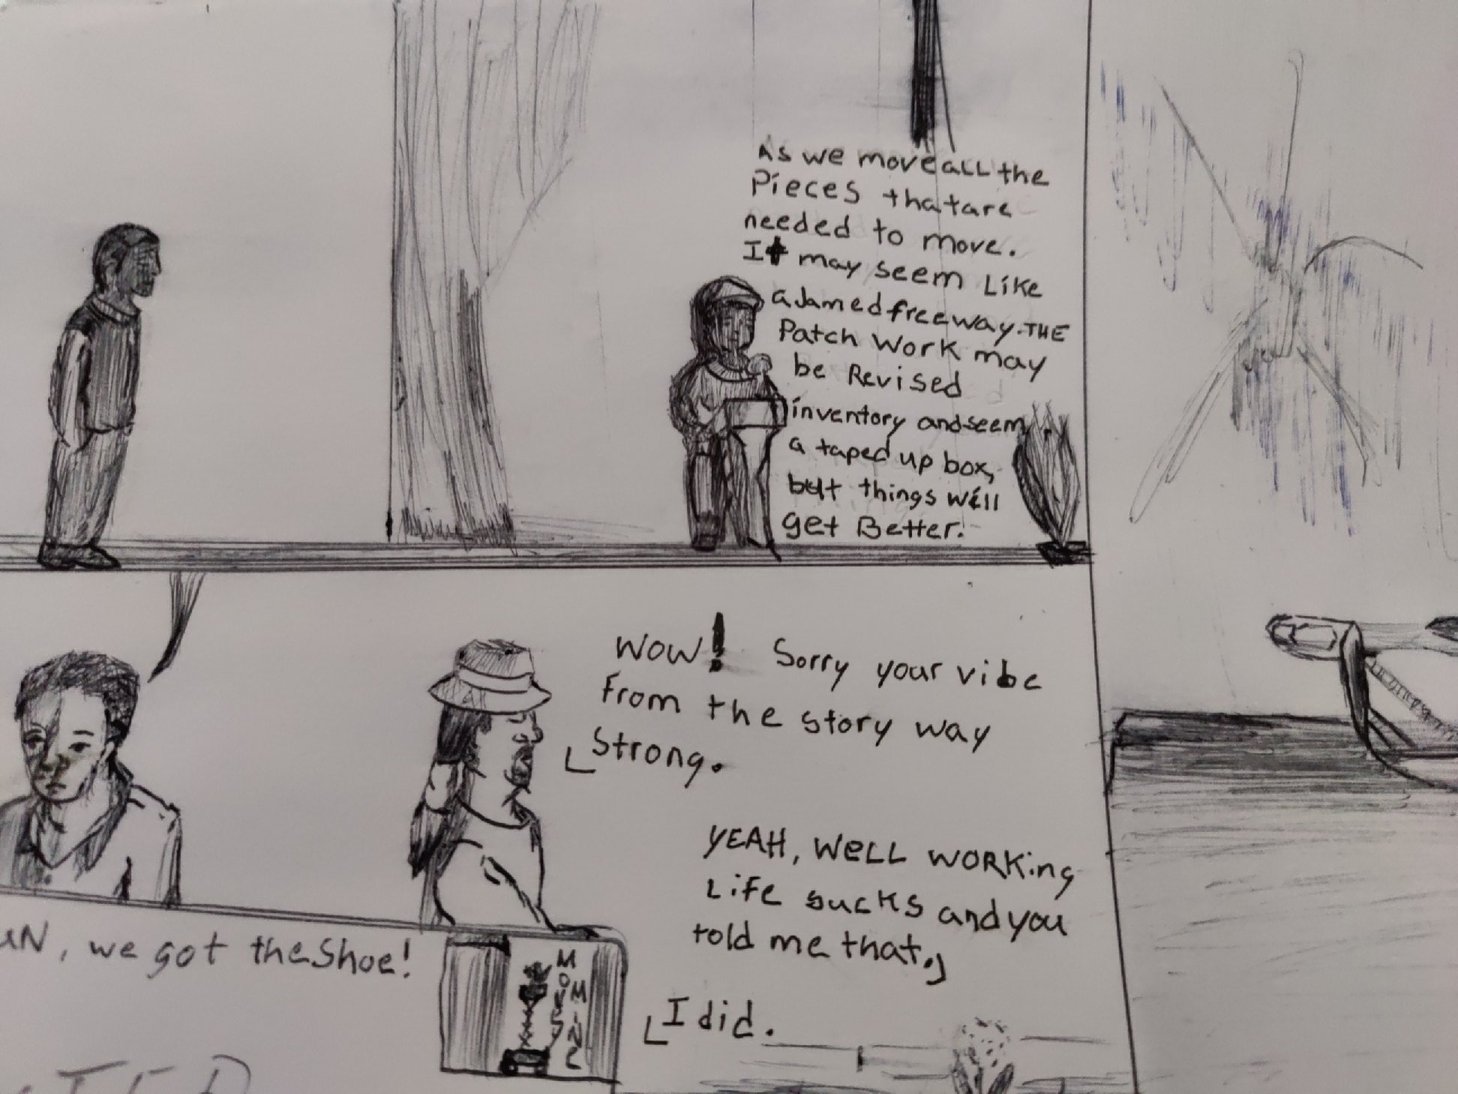 As we move all the
Pieces that are
needed to move.
It may seem Like
a Jamed freeway. THE
Patch Work may
be Revised
inventory and seem
a taped up box,
but things will
get Better.
WOW! Sorry your vibe
From the story way
Strong.
YEAH, WELL WORKing
Life sucks and you
told me that.
I did.
we got the Shoe!